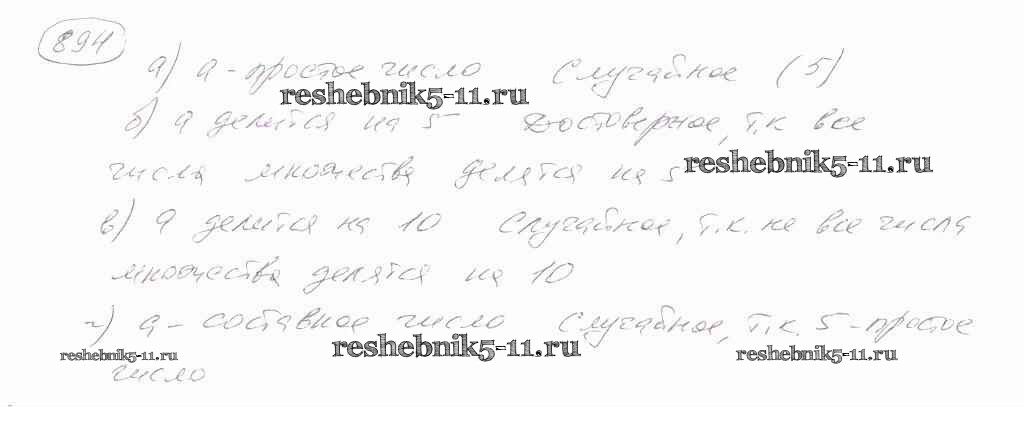 894
а) а - простое число Случайное (5)
reshebnik5-11.ru
б) а делится на 5 Достоверное, т.к все
числа множества делятся на 5 reshebnik5-11.ru
в) а делится на 10 Случайное, т.к. не все числа
множества делятся на 10
г) а - составное число Случайное, т.к. 5 - простое
reshebnik5-11.ru reshebnik5-11.ru reshebnik5-11.ru
число